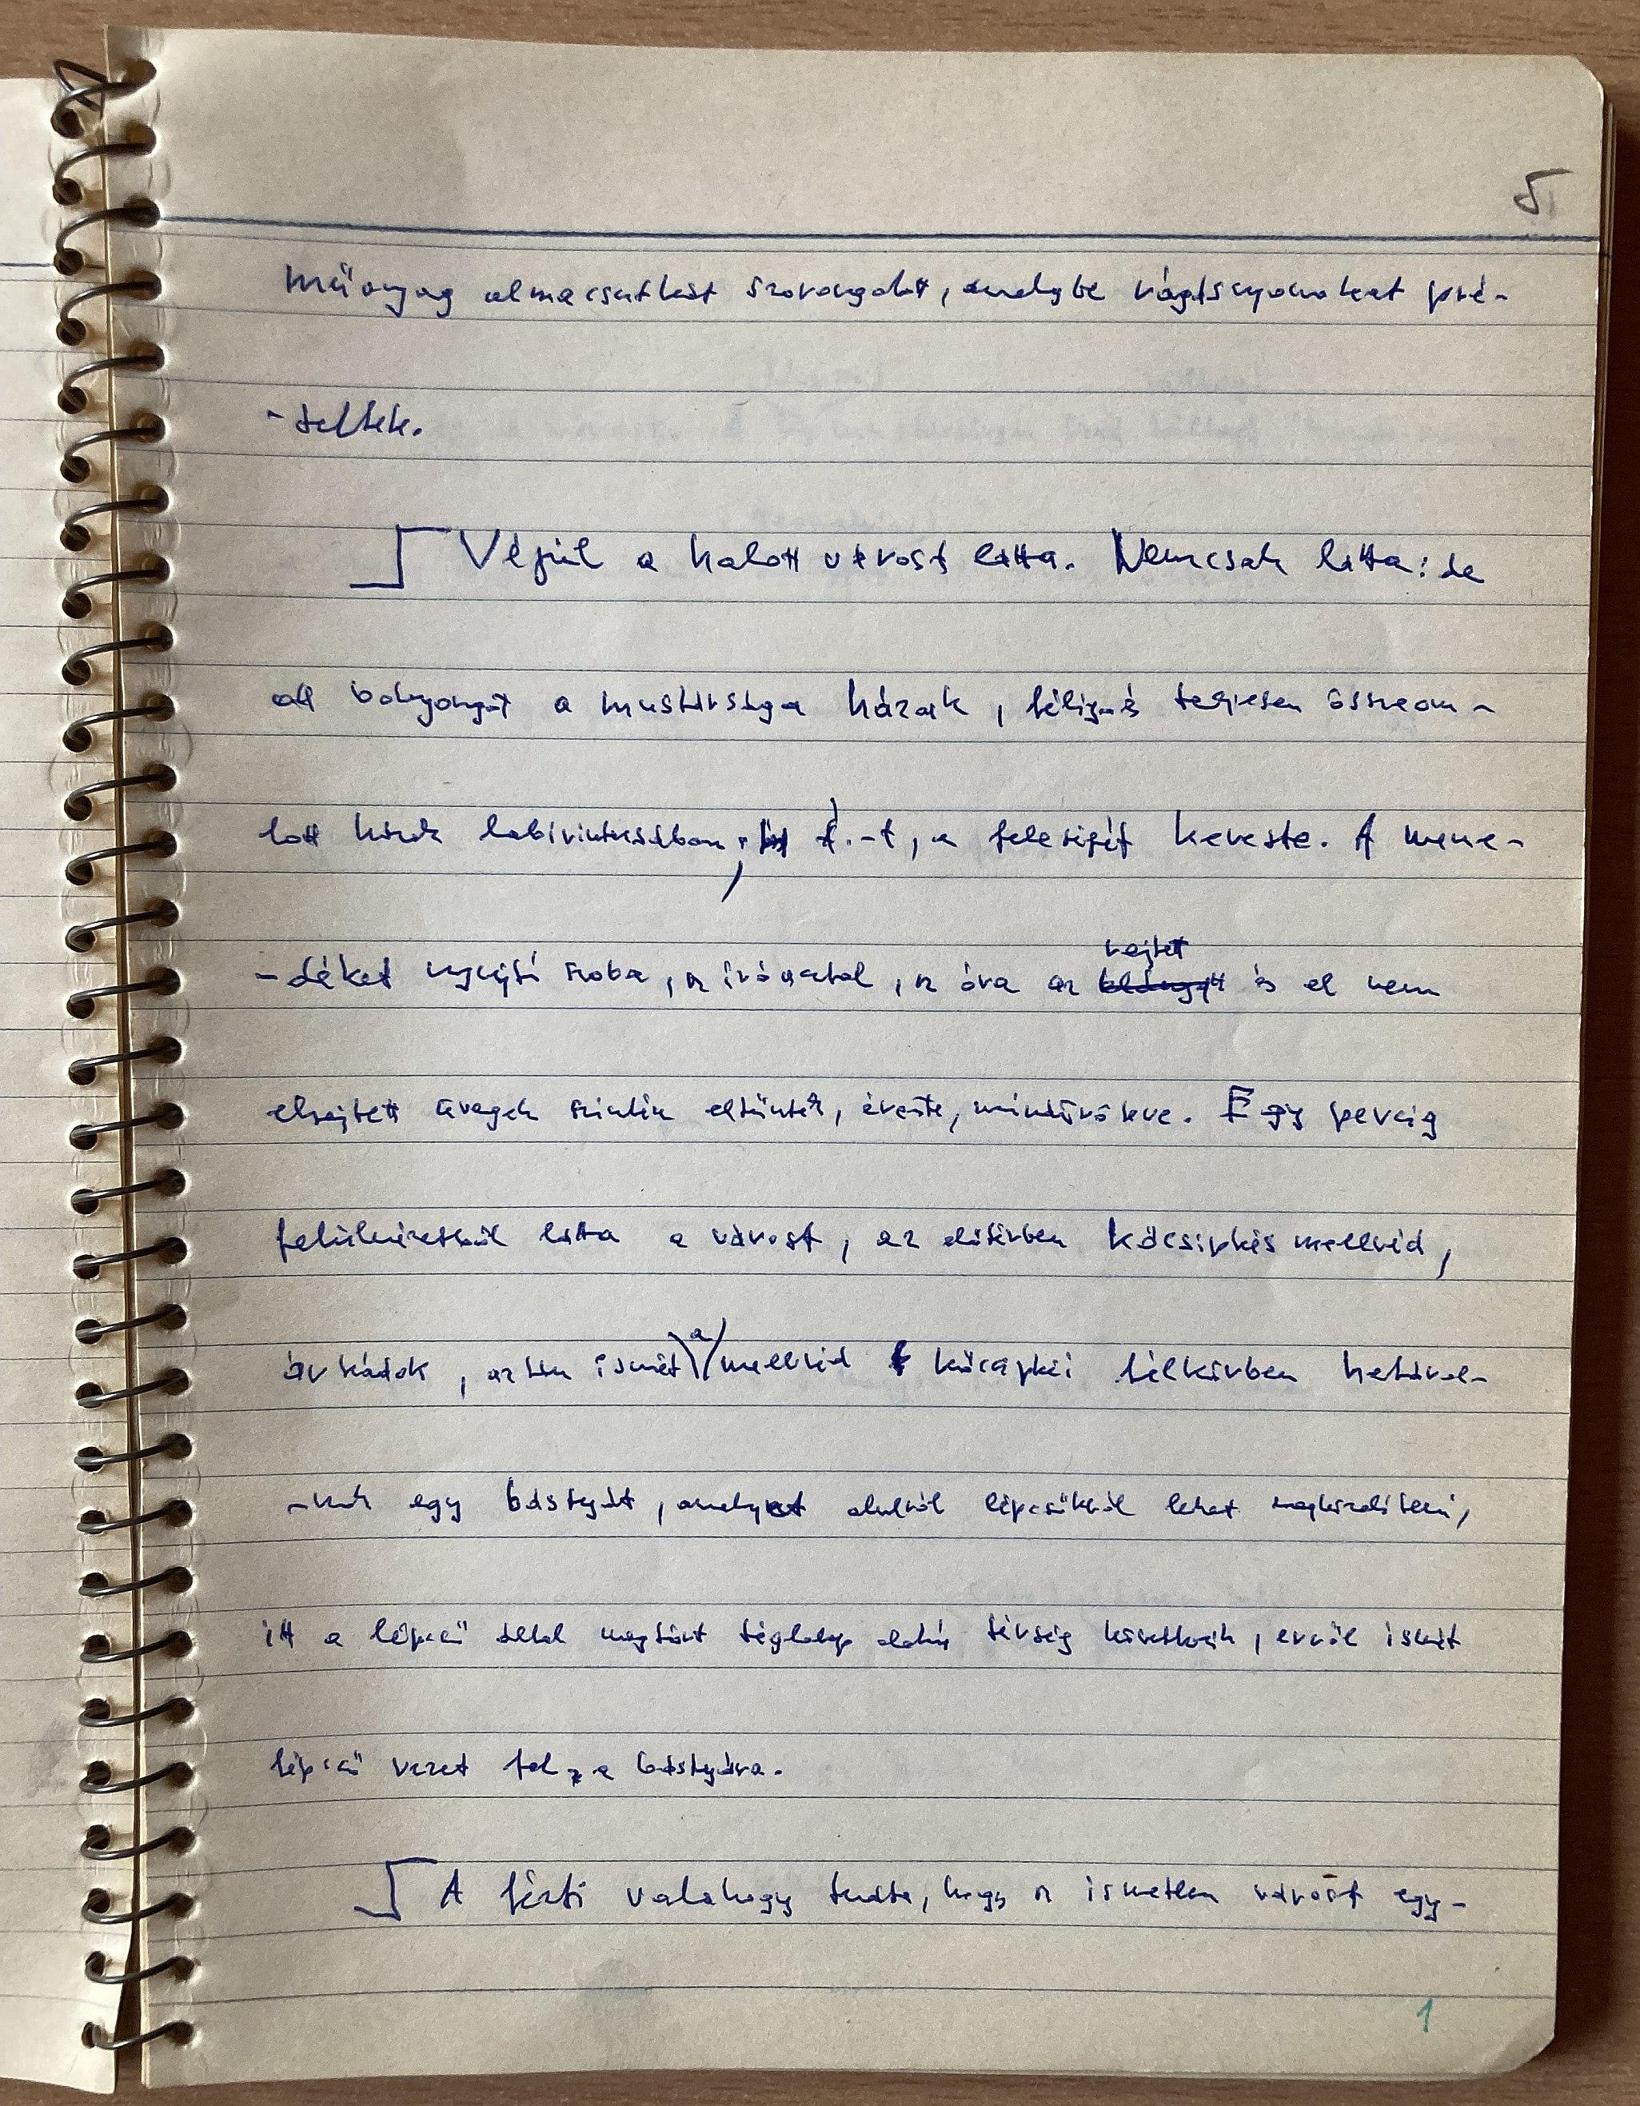 5
műanyag almacsutkát szorongatott, amelybe vágásnyomokat pré-
-seltek.
Végül a halott várost látta. Nemcsak látta: de
ott bolyongott a mustársárga házak, félig-és teljesen összeom-
lott házak labirintusában, t.-t, a feleségét kereste. A mene-
-déket nyújtó szoba, az íróasztal, az óra az rejtett és el nem
elrejtett üvegek szintén eltűntek, érezte, mindörökre. Egy percig
felülnézetből látta a várost, az előtérben kőcsipkés mellvéd,
árkádok, aztán ismét a mellvéd kőcsipkéi félkörben határol-
-nak egy bástyát, amelyet alulról lépcsőkről lehet megközelíteni,
itt a lépcső által megtört téglalap alakú térség következik, erről ismét
lépcső vezet fel a bástyára.
A férfi valahogy tudta, hogy az ismeretlen várost egy-
1